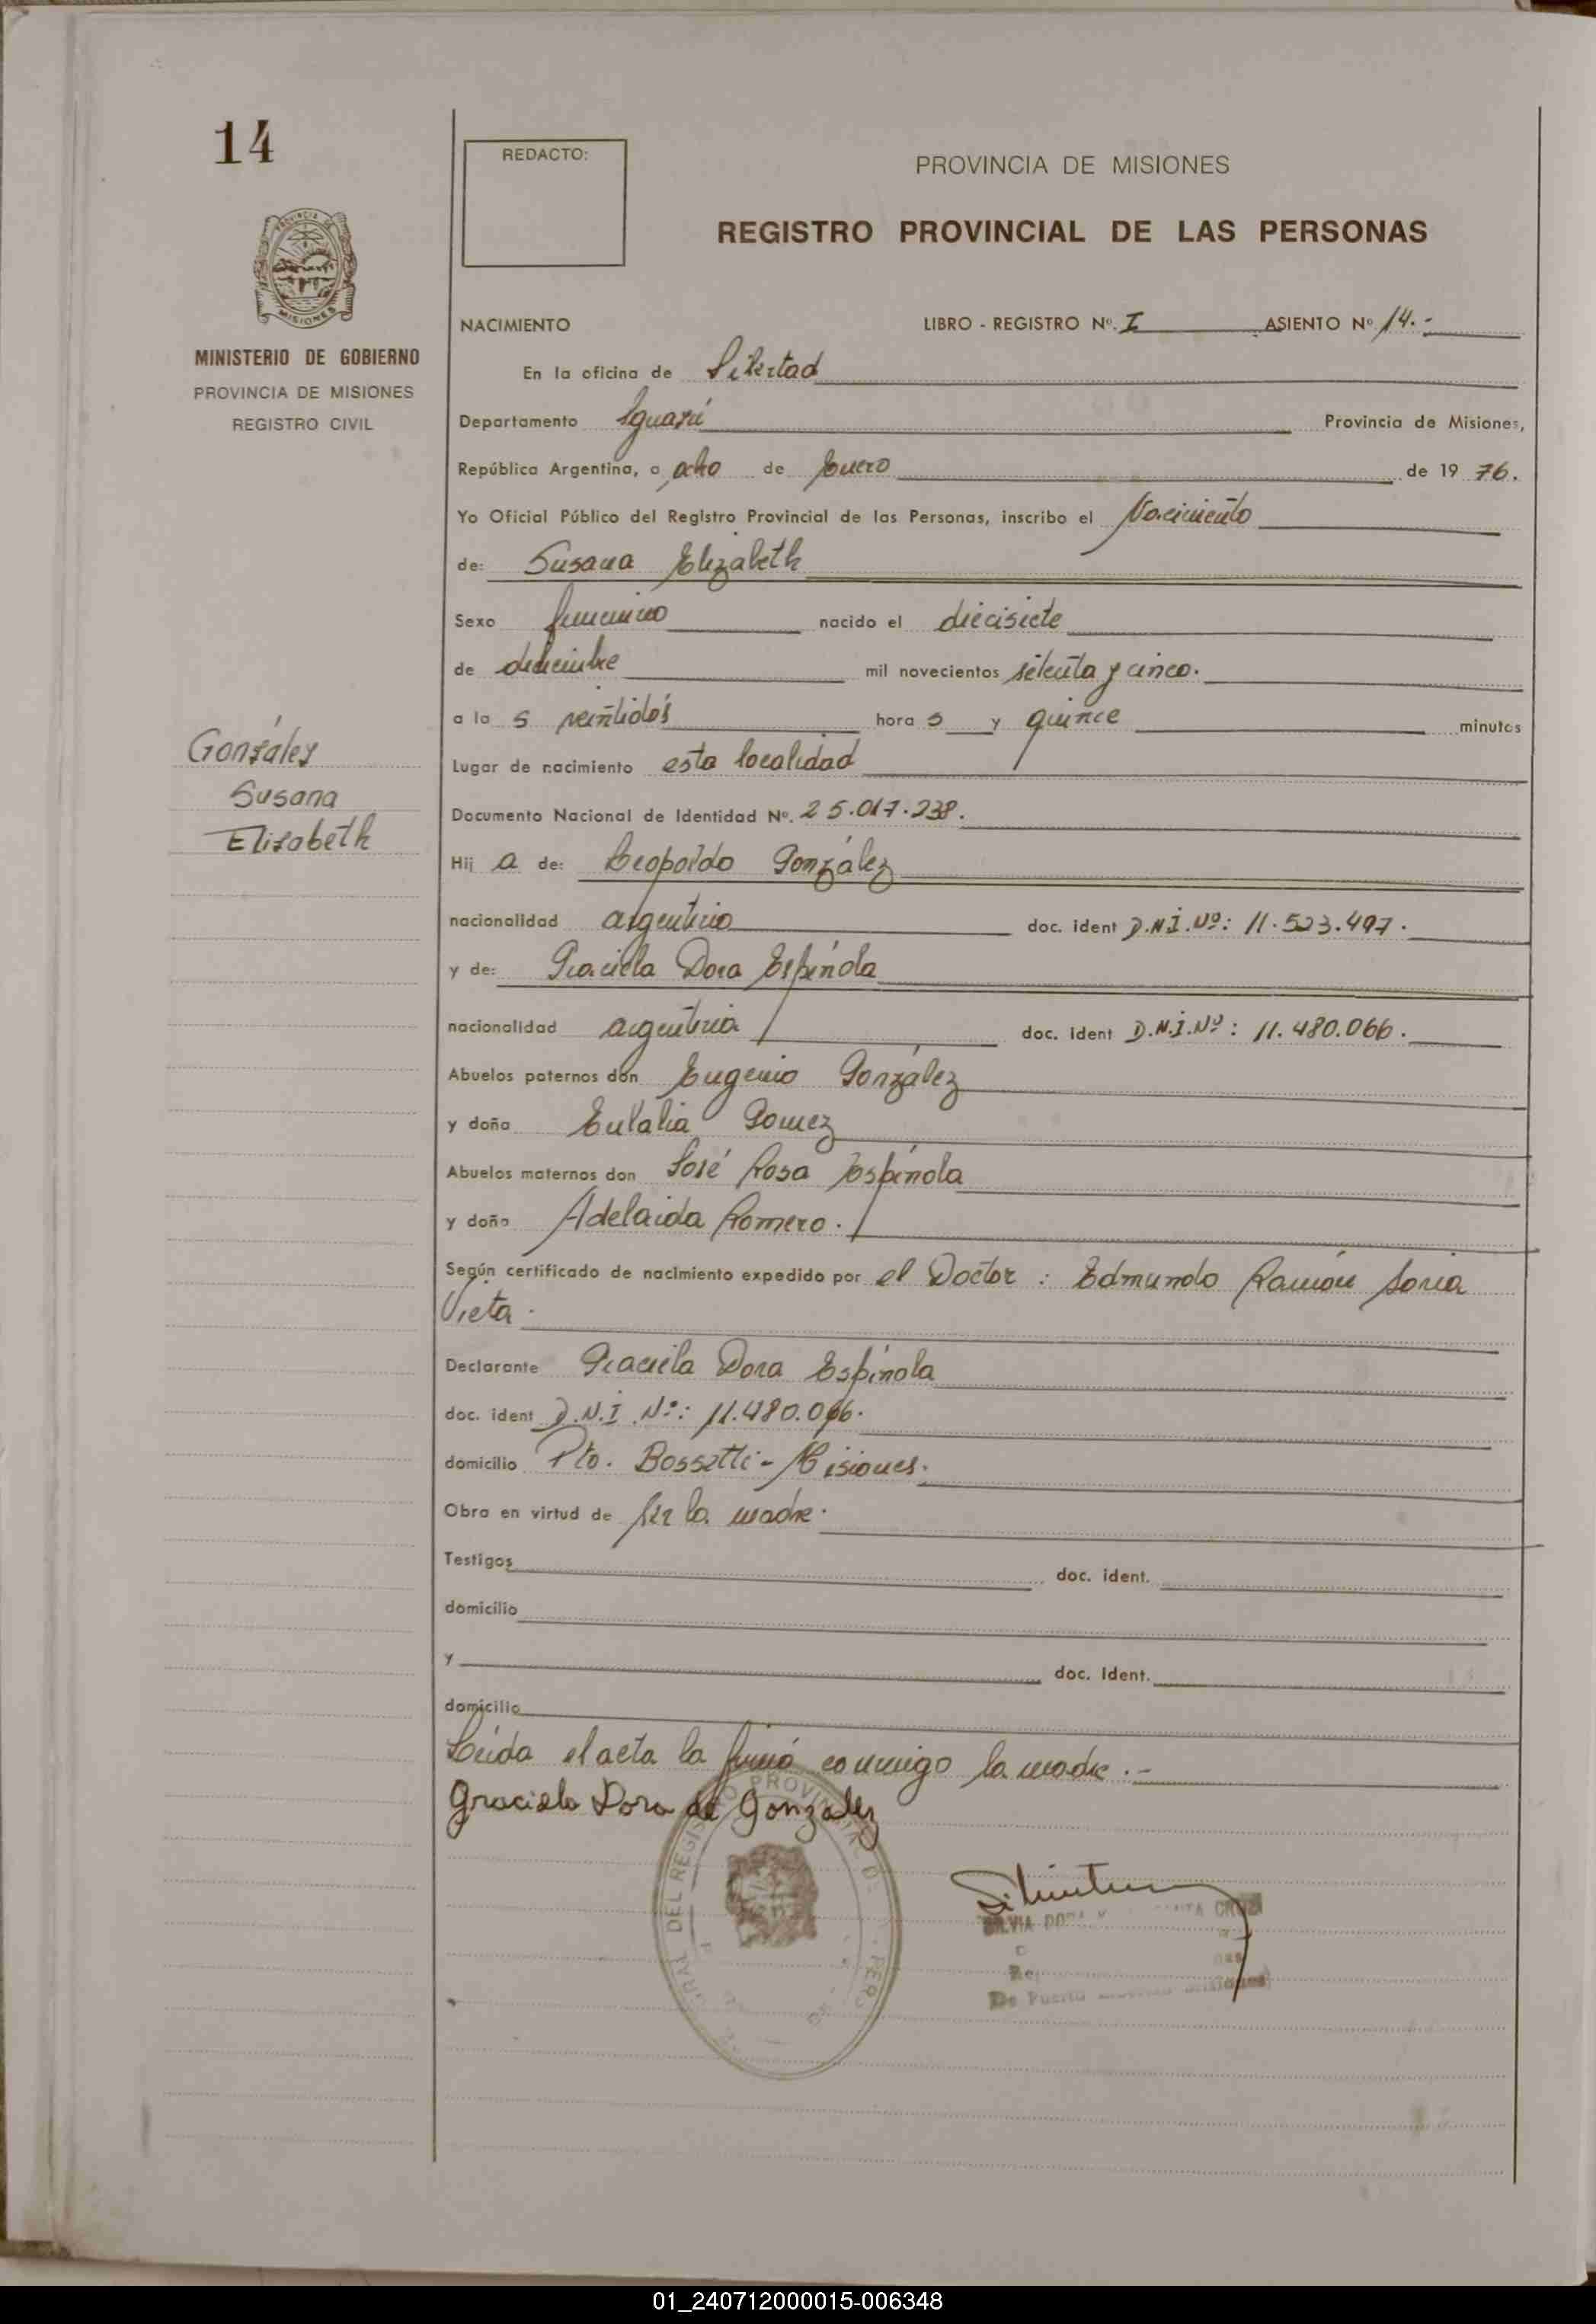 14
REDACTO:
PROVINCIA DE MISIONES
REGISTRO PROVINCIAL DE LAS PERSONAS
PROVINCIA DE
MISIONES
MINISTERIO DE GOBIERNO
PROVINCIA DE MISIONES
REGISTRO CIVIL
NACIMIENTO LIBRO - REGISTRO Nº. I ASIENTO Nº 14.-
En la oficina de Libertad
Departamento Iguazú Provincia de Misiones,
República Argentina, a ocho de Enero de 19 76.
Yo Oficial Público del Registro Provincial de las Personas, inscribo el Nacimiento
de: Susana Elizabeth
Sexo femenino nacido el diecisiete
de diciembre mil novecientos setenta y cinco.
a la s veintidós hora s y quince minutos
Lugar de nacimiento esta localidad
González
Susana
Elizabeth
Documento Nacional de Identidad Nº. 25.017.238.
Hij a de: Leopoldo González
nacionalidad argentino doc. ident D.N.I.Nº: 11.523.497.
y de: Graciela Dora Espínola
nacionalidad argentina doc. ident D.N.I.Nº: 11.480.066.
Abuelos paternos don Eugenio González
y doña Eulalia Gomez
Abuelos maternos don José Rosa Espínola
y doña Adelaida Romero.
Según certificado de nacimiento expedido por el Doctor: Edmundo Ramón Soria
Vieta.
Declarante Graciela Dora Espínola
doc. ident D.N.I Nº: 11.480.066.
domicilio Pto. Bossetti - Misiones.
Obra en virtud de ser la madre.
Testigos doc. ident.
domicilio
y doc. Ident.
domicilio
Leída el acta la firmó conmigo la madre.-
Graciela Dora de Gonzalez
GRAL DEL REGISTRO PROVINCIAL DE PERS
SILVIA DORA CRUZ
De Puerto Misiones
01_240712000015-006348